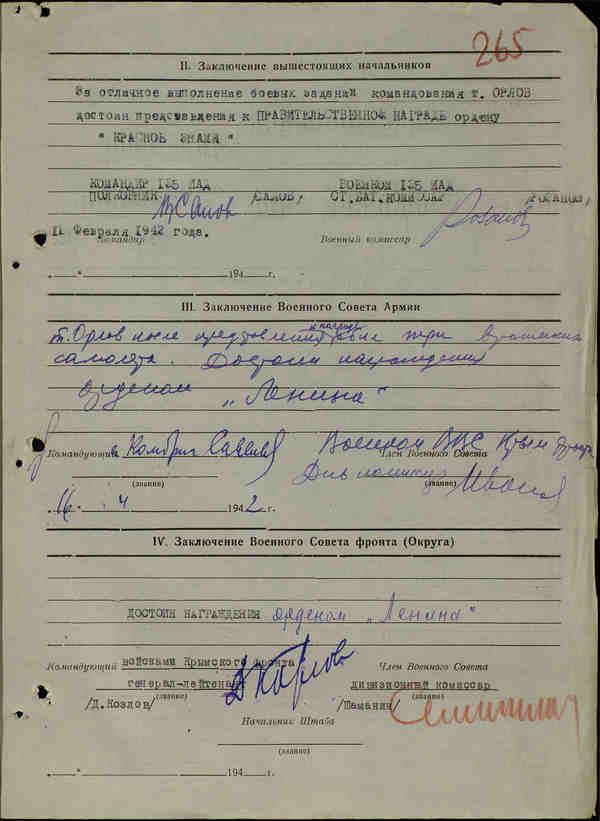 265
II. Заключение вышестоящих начальников
За отличное выполнение боевых заданий командования т. ОРЛОВ
достоин представления к ПРАВИТЕЛЬСТВЕННОЙ НАГРАДЕ ордену
" КРАСНОЕ ЗНАМЯ "
КОМАНДИР 135 ИАД ВОЕНКОМ 135 ИАД
ПОЛКОВНИК /САЛОВ/ СТ.БАТ.КОМИССАР
11 Февраля 1942 года.
Командир Военный комиссар
„ " 194 г.
III. Заключение Военного Совета Армии
т. Орлов после представления к награде три
самолета. Достоин награждения
орденом „Ленина"
Командующий Комбриг Военком ВВС Крым фронта
Член Военного Совета
(звание) Див (звание)
„16" 4 1942 г.
IV. Заключение Военного Совета фронта (Округа)
ДОСТОИН НАГРАЖДЕНИЯ орденом „Ленина"
Командующий войсками Крымского фронта Член Военного Совета
генерал-лейтенант дивизионный комиссар
(звание) (звание)
/Д.Козлов/ /Шаманин/
Начальник Штаба
(звание)
„ " 194 г.